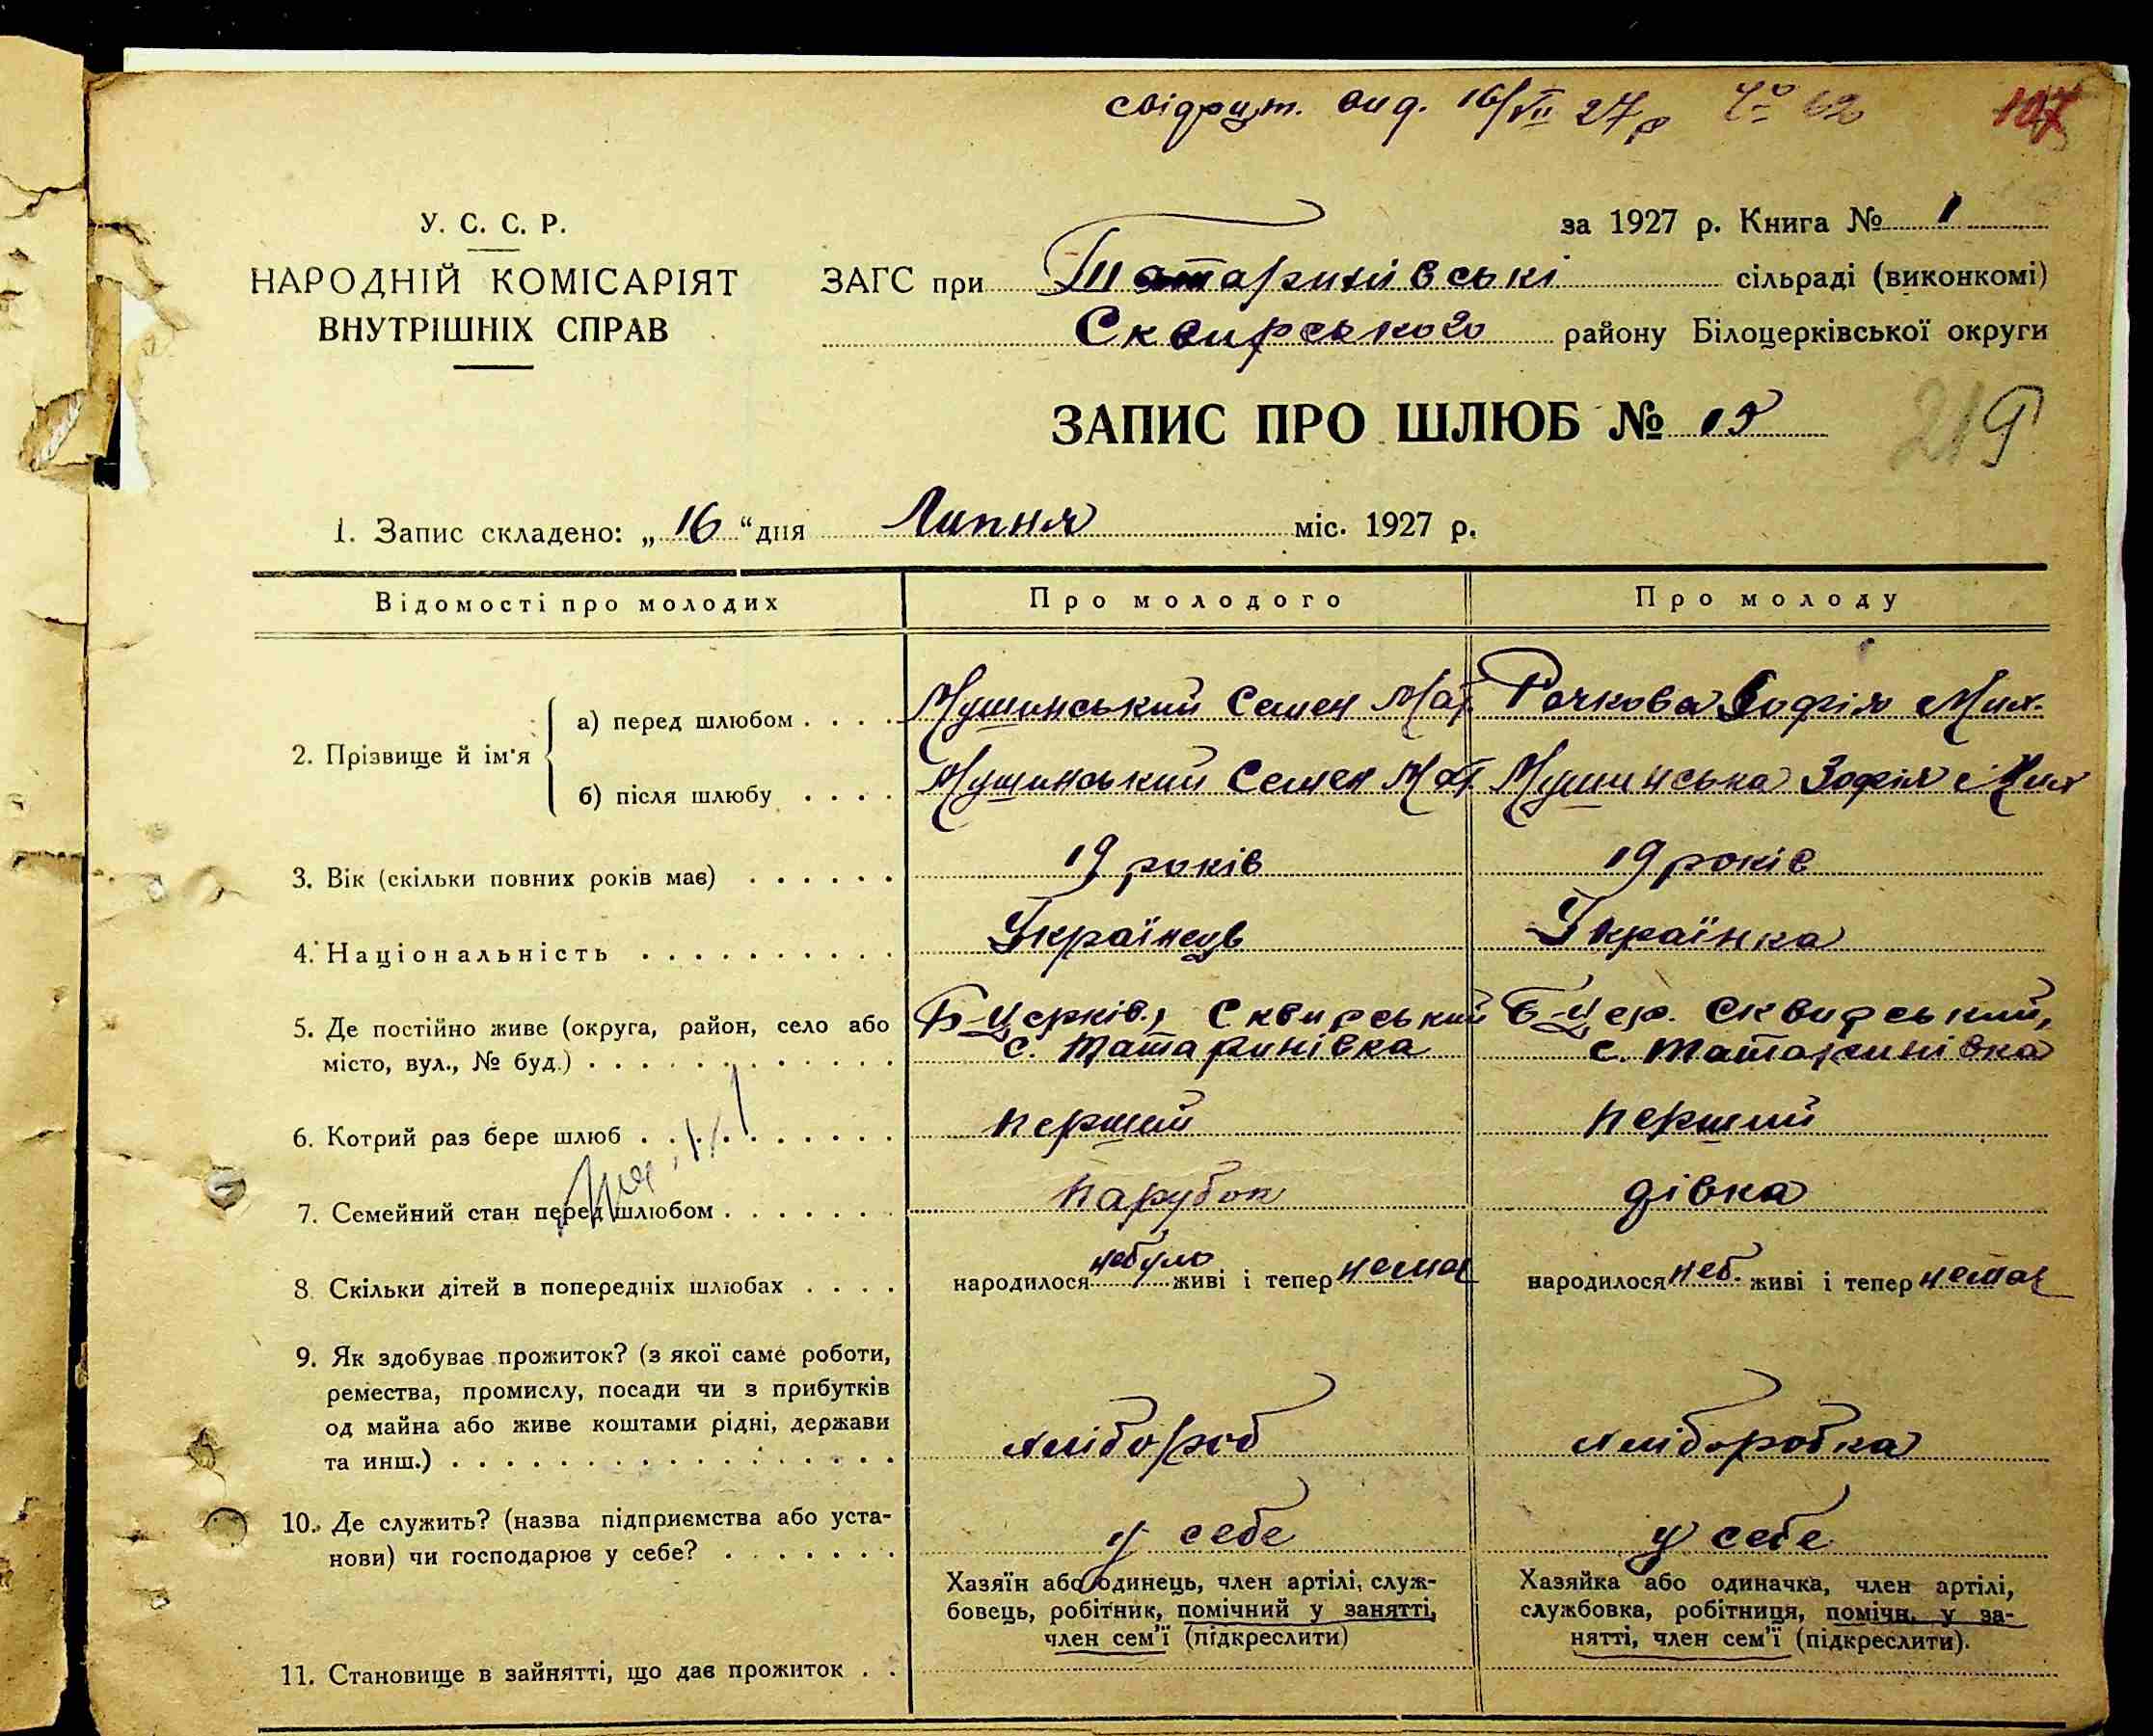 свідоцт. вид. 16/VII 27 р № 62 107
У. С. С. Р.
за 1927 р. Книга № 1
НАРОДНІЙ КОМІСАРІЯТ
ВНУТРІШНІХ СПРАВ
ЗАГС при Татаринівські сільраді (виконкомі)
Сквирського району Білоцерківської округи
ЗАПИС ПРО ШЛЮБ №
219
1. Запис складено: „16“ дня Липня міс. 1927 р.
Відомості про молодих Про молодого Про молоду
2. Прізвище й ім'я
а) перед шлюбом . . . . Мушинський Семен Мат. Рачкова Зофія Мих.
б) після шлюбу . . . . Мушинський Семен Мат. Мушинська Зофія Мих
3. Вік (скільки повних років має) . . . . . . 19 років 19 років
4. Національність . . . . . . . . . . Українець Українка
5. Де постійно живе (округа, район, село або Б-Церків., Сквирський Б-Цер. Сквирський,
місто, вул., № буд.) . . . . . . . . . . . . с. Татаринівка с. Татаринівка
6. Котрий раз бере шлюб . . . . . . . . . . перший перший
7. Семейний стан перед шлюбом . . . . . . . парубок дівка
8. Скільки дітей в попередніх шлюбах . . . . народилося небуло живі і тепер немає народилося неб. живі і тепер немає
9. Як здобуває прожиток? (з якої саме роботи,
ремества, промислу, посади чи з прибутків
од майна або живе коштами рідні, держави
та инш.) . . . . . . . . . . . . . . . . . хлібороб хліборобка
10. Де служить? (назва підприємства або уста-
нови) чи господарює у себе? . . . . . . . у себе у себе
Хазяїн або одинець, член артілі, служ-
бовець, робітник, помічний у занятті,
член сем'ї (підкреслити)
Хазяйка або одиначка, член артілі,
службовка, робітниця, помічн. у за-
нятті, член сем'ї (підкреслити).
11. Становище в зайнятті, що дає прожиток . .